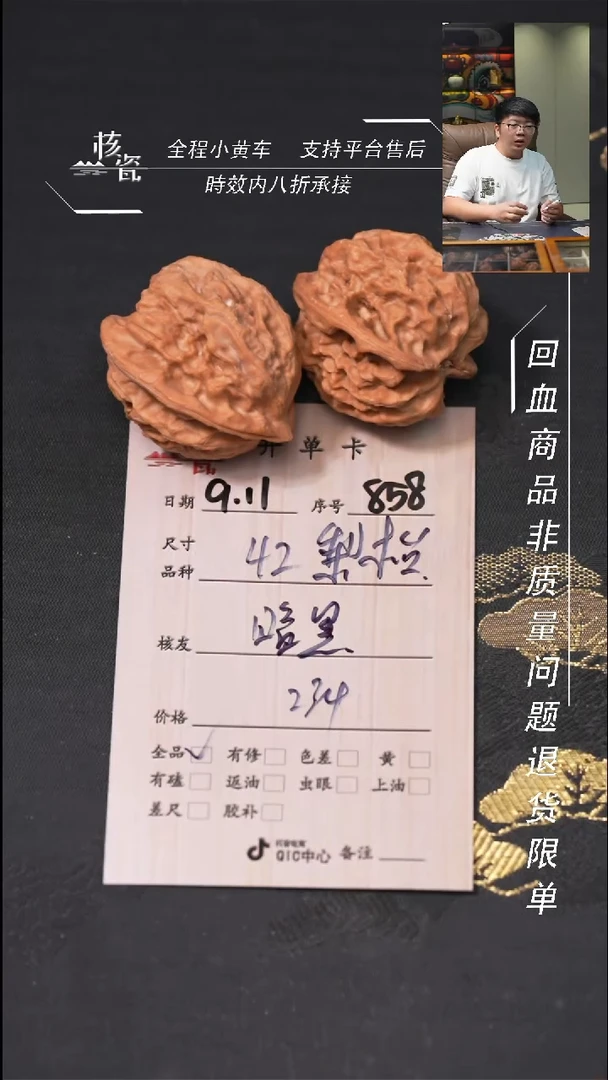 核瓷
全程小黄车 支持平台售后
時效内八折承接
回血商品非质量问题退货限单
开单卡
日期 9.11 序号 858
尺寸
品种 42 梨桩
核友 暗黑
价格 234
全品 有修 色差 黄
有磕 返油 虫眼 上油
差尺 胶补
抖音电商
QIC中心 备注